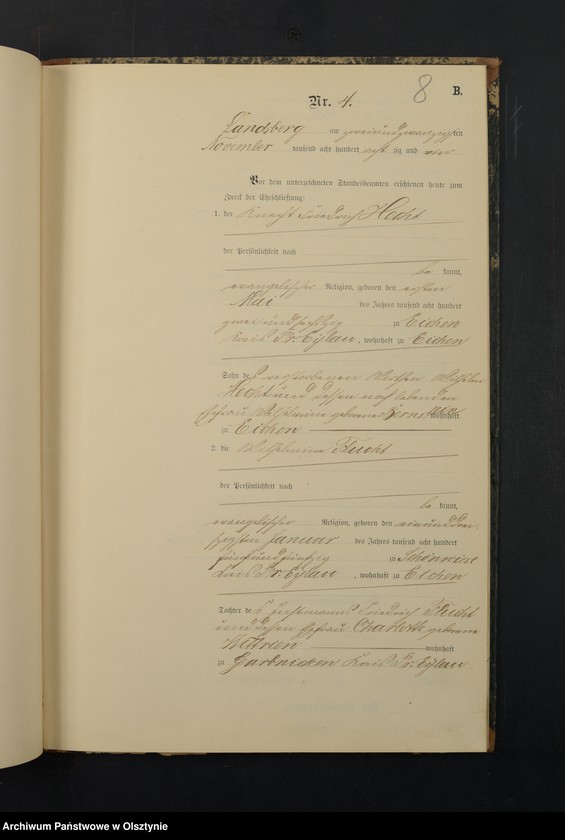 8
B.
Nr. 4.
Landsberg am zweiundzwanzigsten
November tausend acht hundert acht zig und vier
Vor dem unterzeichneten Standesbeamten erschienen heute zum
Zweck der Eheschließung:
1. der Knecht Friedrich Hecht
der Persönlichkeit nach
be kannt,
evangelischer Religion, geboren den ersten
Mai des Jahres tausend acht hundert
zwei und sechszig zu Eichen
Kreis Pr. Eylau, wohnhaft zu Eichen
Sohn des verstorbenen Wilhelm
Hecht und dessen noch lebenden
Ehefrau Wilhelmine geborene wohnhaft
zu Eichen
2. die Wilhelmine Flucht
der Persönlichkeit nach
be kannt,
evangelischer Religion, geboren den einunddrei-
ßigsten Januar des Jahres tausend acht hundert
fünfundfünfzig zu Schönwiese
Kreis Pr. Eylau, wohnhaft zu Eichen
Tochter des Instmanns Friedrich Flucht
und dessen Ehefrau Charlotte geborene
wohnhaft
zu Garbnicken Kreis Pr. Eylau
Archiwum Państwowe w Olsztynie